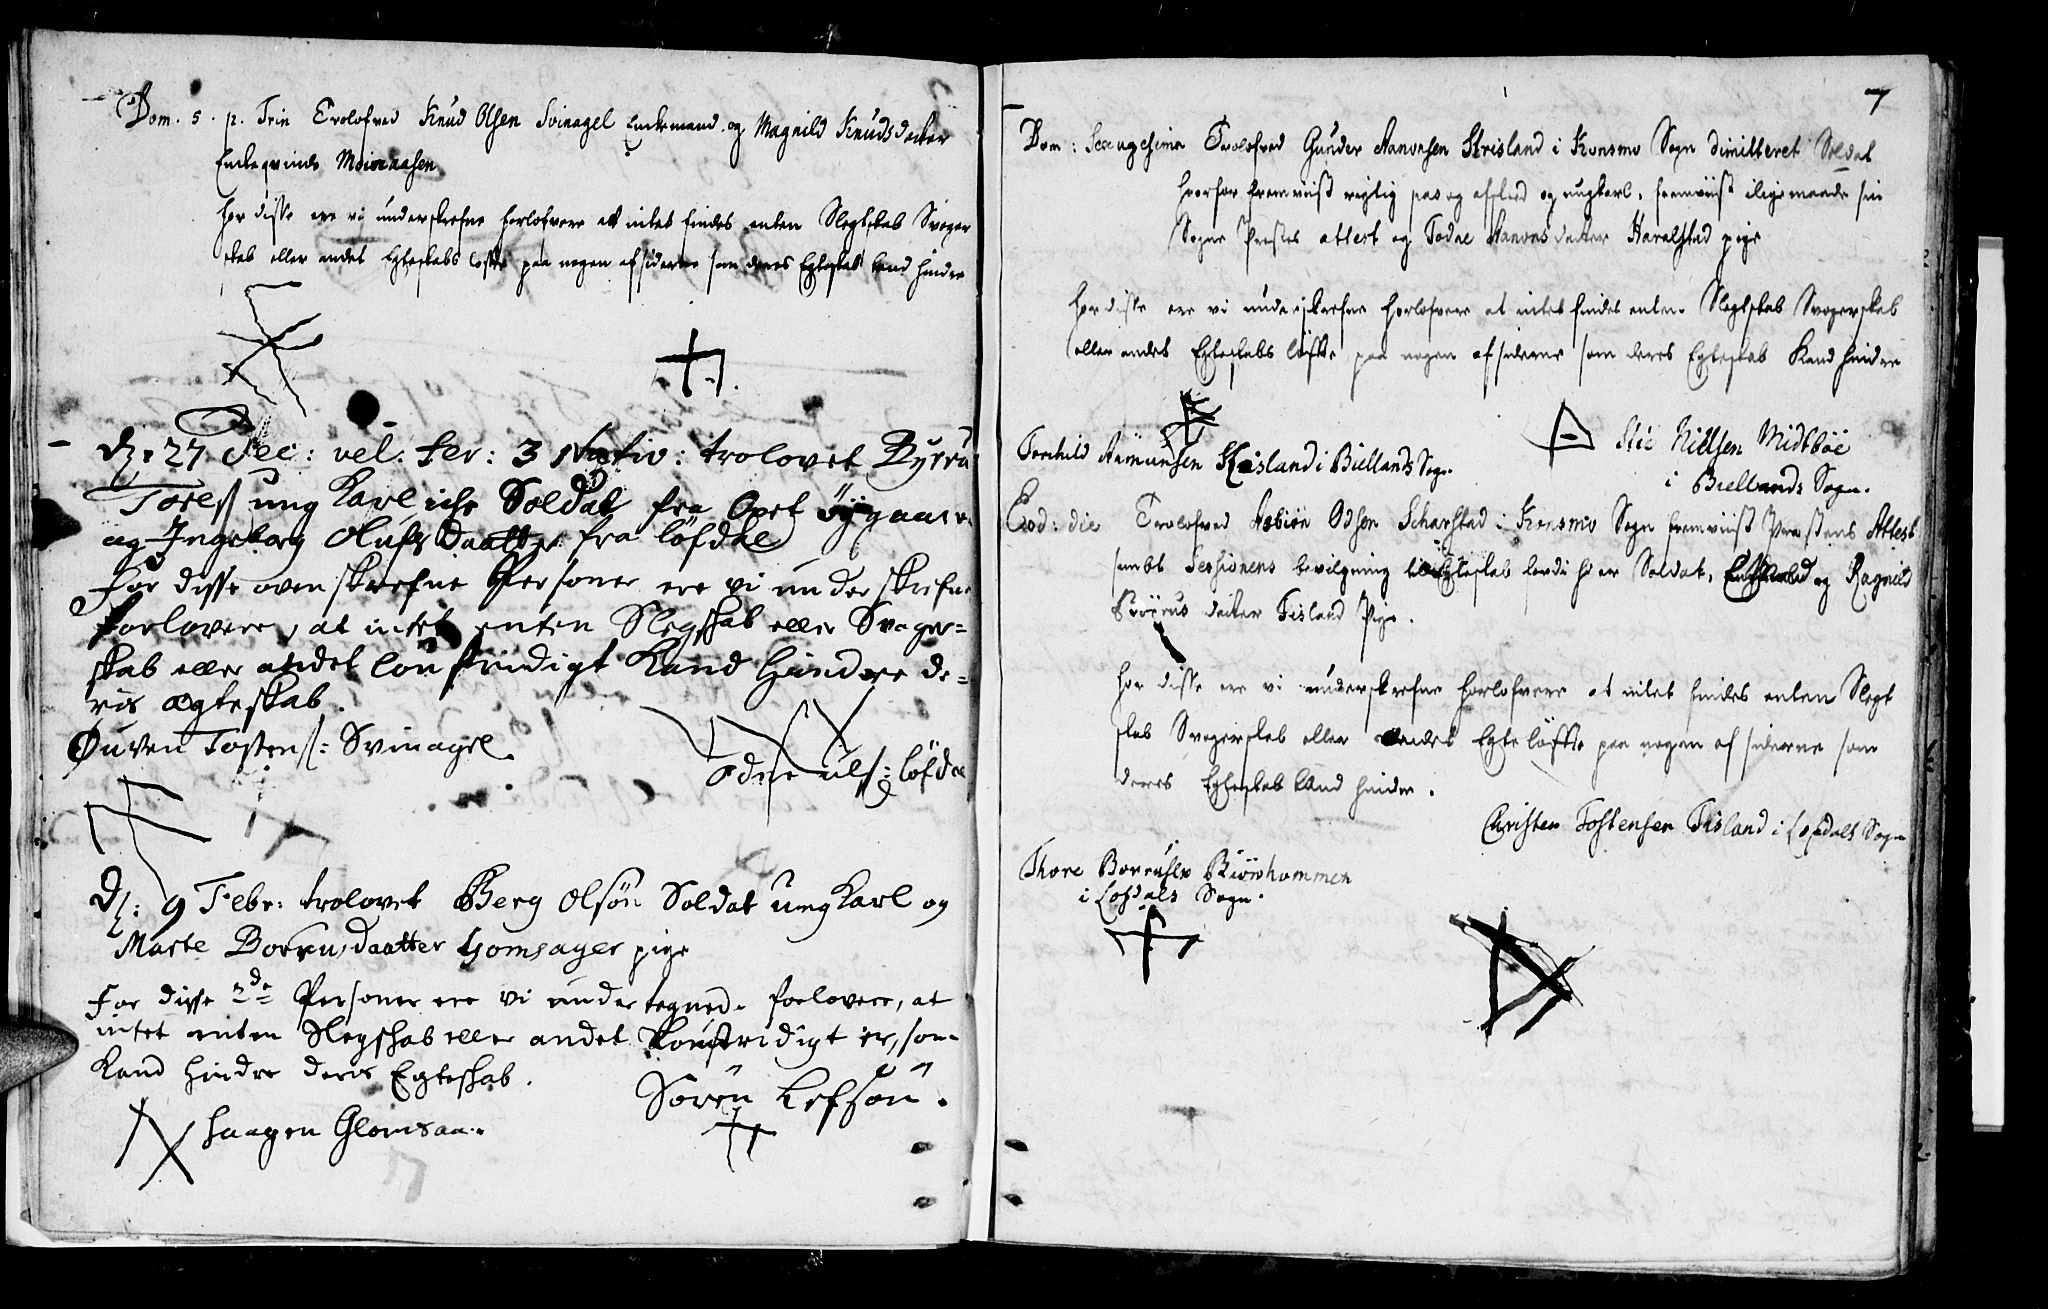 Dom. 5. p. Trin Trolofved Knud Olsen Svinagel Enckemand og Magnild Knudsdatter
Enckeqvinde Moisaasen
For disse ere vi underskrefne Forlofvere at intet findes enten Slegtskab Svoger
skab eller andet Egteskabs løfte paa nogen af siderne som deres Egteskab kand hindre
d. 27 Dec: vel. fer: 3 Nativ: trolovet Byrru
Tores ung Karl icke Soldat fra Opet Øygaar
og Ingeborg Olufs Daatter fra löfdal
For disse ovenskrefne Personer ere vi underskrefne
Forlovere, at intet enten Slegskab eller Svoger=
skab eller andet Construdigt Kand Hindre de=
ris ægteskab.
Øuven Tostens: Svinagel
Odne uls: löfdal
d: 9 Febr: trolovet Berg Olsön Soldat ung Karl og
Marte Borrus daatter Homsager pige
For disse 2de Personer ere vi undertegnede forlovere, at
intet enten Slegskab eller andet Konstridigt er, som
Kand Hindre deris Egteskab.
Sören Lefsön.
Haagen Glomsaa.
7
Dom: Sexagesima Trolofved Gunder Aanonsen Skrisland i Konsmo Sogn dimitteret Soldat
hvorfor fremviist rigtig pas og afskeed og ungkarl, fremviist iligemaade sin
Sogne Prestes attest og Todne Aanonsdatter Haralstad pige
For disse ere vi underskrefne Forlofvere at intet findes enten Slegtskab Svogerskab
eller andet Egteskabs løfte paa nogen af siderne som deres Egteskab Kand hindre
Torchild Aamunsen Skisland i Biellands Sogn
Stie Nielsen Midtböe
i Biellands Sogn.
Eod: die Trolofved Asbiön Odsen Scharstad i Konsmo Sogn fremviist Prestens Attest
sambt Sessionens bevilgning til Egteskab fordi hs er Soldat, og Ragnild
Börrus datter Fisland Pige.
For disse ere vi underskrefne Forlofvere at intet findes enten Slegt
skab Svogerskab eller andet Egte løfte paa nogen af siderne som
deres Egteskab kand hindre.
Christen Tostensen Fisland i Lofdals Sogn
Thore Borrusen Biörnhommen
i Lofdals Sogn.